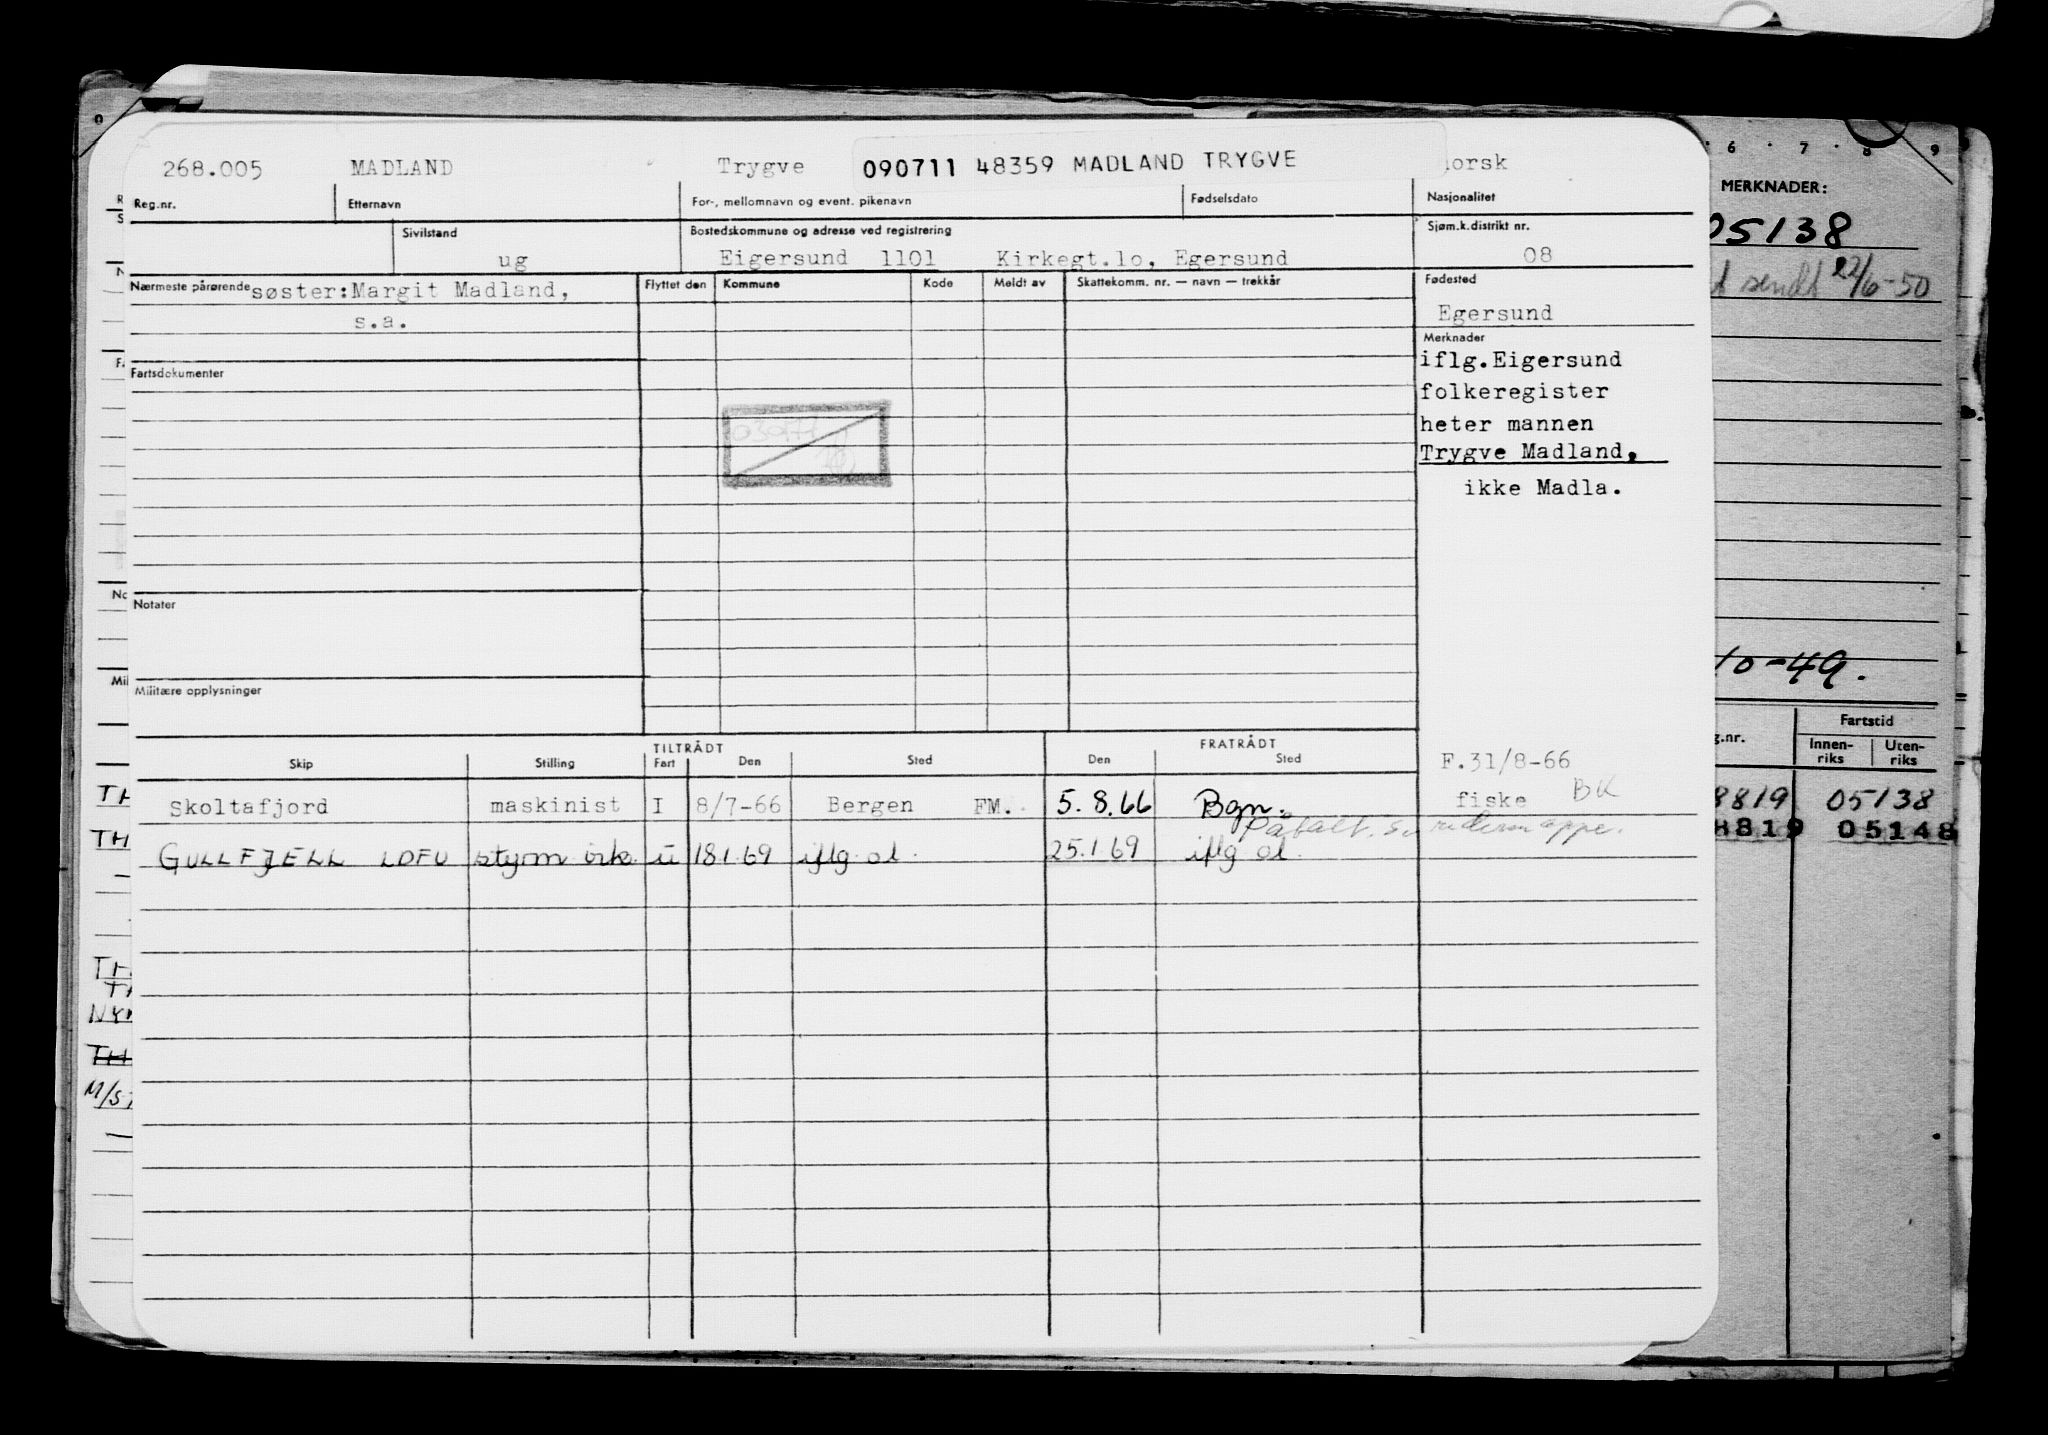 268.005 MADLAND Trygve 090711 48359 MADLAND TRYGVE orsk
Reg.nr. Etternavn For-, mellomnavn og event. pikenavn Fødselsdato Nasjonalitet
Sivilstand Bostedskommune og adresse ved registrering Sjøm.k.distrikt nr.
ug Eigersund 1101 Kirkegt.lo, Egersund 08
Nærmeste pårørende søster:Margit Madland, Flyttet den Kommune Kode Meldt av Skattekomm. nr. — navn — trekkår Fødested
s.a. Egersund
Merknader
iflg.Eigersund
Fartsdokumenter
folkeregister
heter mannen
Trygve Madland,
ikke Madla.
Notater
Militære opplysninger
TILTRÅDT FRATRÅDT
Skip Stilling Fart Den Sted Den Sted F.31/8-66
Skoltafjord maskinist I 8/7-66 Bergen FM. 5.8.66 Bgn. fiske BK
GULLFJELL LDFU styrm u 18.1.69 iflg ol. 25.1.69 iflg ol.
6 7 8 9
MERKNADER:
05138
sendt 22/6-50
10-49.
Fartstid
g.nr. Innen-riks Uten-riks
8819 05138
8819 05148